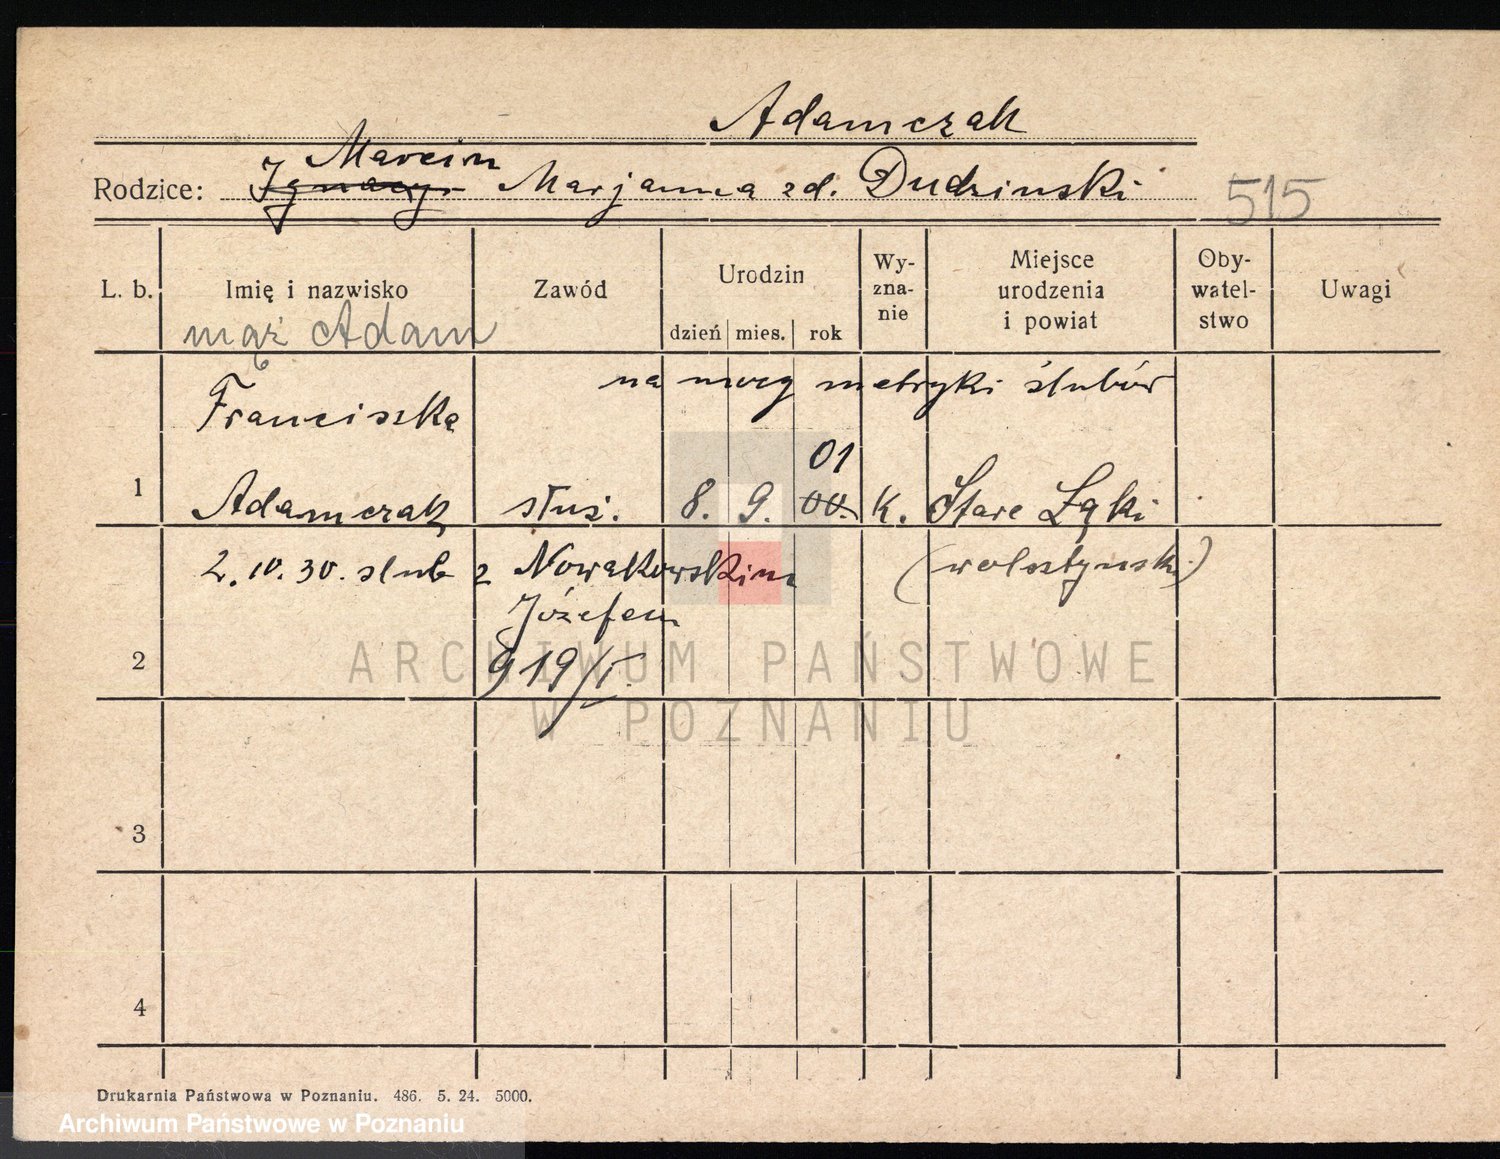 Adamczak
Marcin
Rodzice: Ignacy Marjanna zd. Dudzinski 515
L. b. Imię i nazwisko Zawód Urodzin dzień mies. rok Wy-zna-nie Miejsce urodzenia i powiat Oby-watel-stwo Uwagi
mąż Adam
na mocy metryki ślubów
Franciszka
01
1 Adamczak służ. 8. 9. 00. k. Stare Łąki
2.10.30. slub z Nowakowskim (wolsztynsk.)
Józefem
2 919/I.
ARCHIWUM PAŃSTWOWE
W POZNANIU
3
4
Drukarnia Państwowa w Poznaniu. 486. 5. 24. 5000.
Archiwum Państwowe w Poznaniu